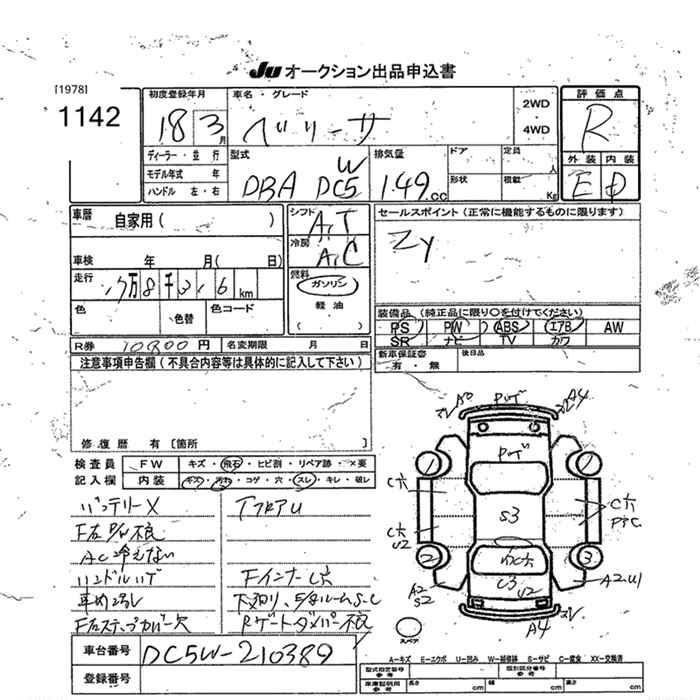 Ju オークション出品申込書
[1978]
1142
初度登録年月
18 3月
車名・グレード
ベリーサ
2WD
4WD
評価点
R
外装 内装
E D
ディーラー・並行
モデル年式 年
ハンドル 左・右
型式
DBA DC5W
排気量
1.49cc
ドア
形状
定員
人
積載
Kg
車歴 自家用( )
車検 年 月( 日)
走行
万8千 km
色
色替
色コード
シフト
A,T
冷房
A,C
燃料
ガソリン
軽油
セールスポイント(正常に機能するものに限ります)
Zy
装備品(純正品に限り○を付けてください)
PS PW ABS エアB AW
SR ナビ TV カワ
R券 10800円 名変期限 月 日
新車保証書 後日品
有・無
注意事項申告欄(不具合内容等は具体的に記入して下さい)
修復歴 有〔箇所 〕
検査員 FW キズ・飛石・ヒビ割・リペア跡・×要
記入欄 内装 キズ・汚れ・コゲ・穴・スレ・キレ・破レ
バッテリーX
F左P/W不良
AC冷えない
ハンドルハゲ
F左ステップカバー欠
FインナーC穴
下廻り、
Rゲートダンパー不良
A4
S3
C穴
C穴
U2
C穴
1
1
2
3
A2
S2
C3
U2
A2.U1
A4
スペア
車台番号 DC5W-210389
登録番号
A-キズ E-エクボ U-凹み W-補修跡 S-サビ C-腐食 XX-交換済
型式指定番号
参考
類別区分番号
参考
車庫証明用
参考
長さ cm 幅 cm 高さ cm